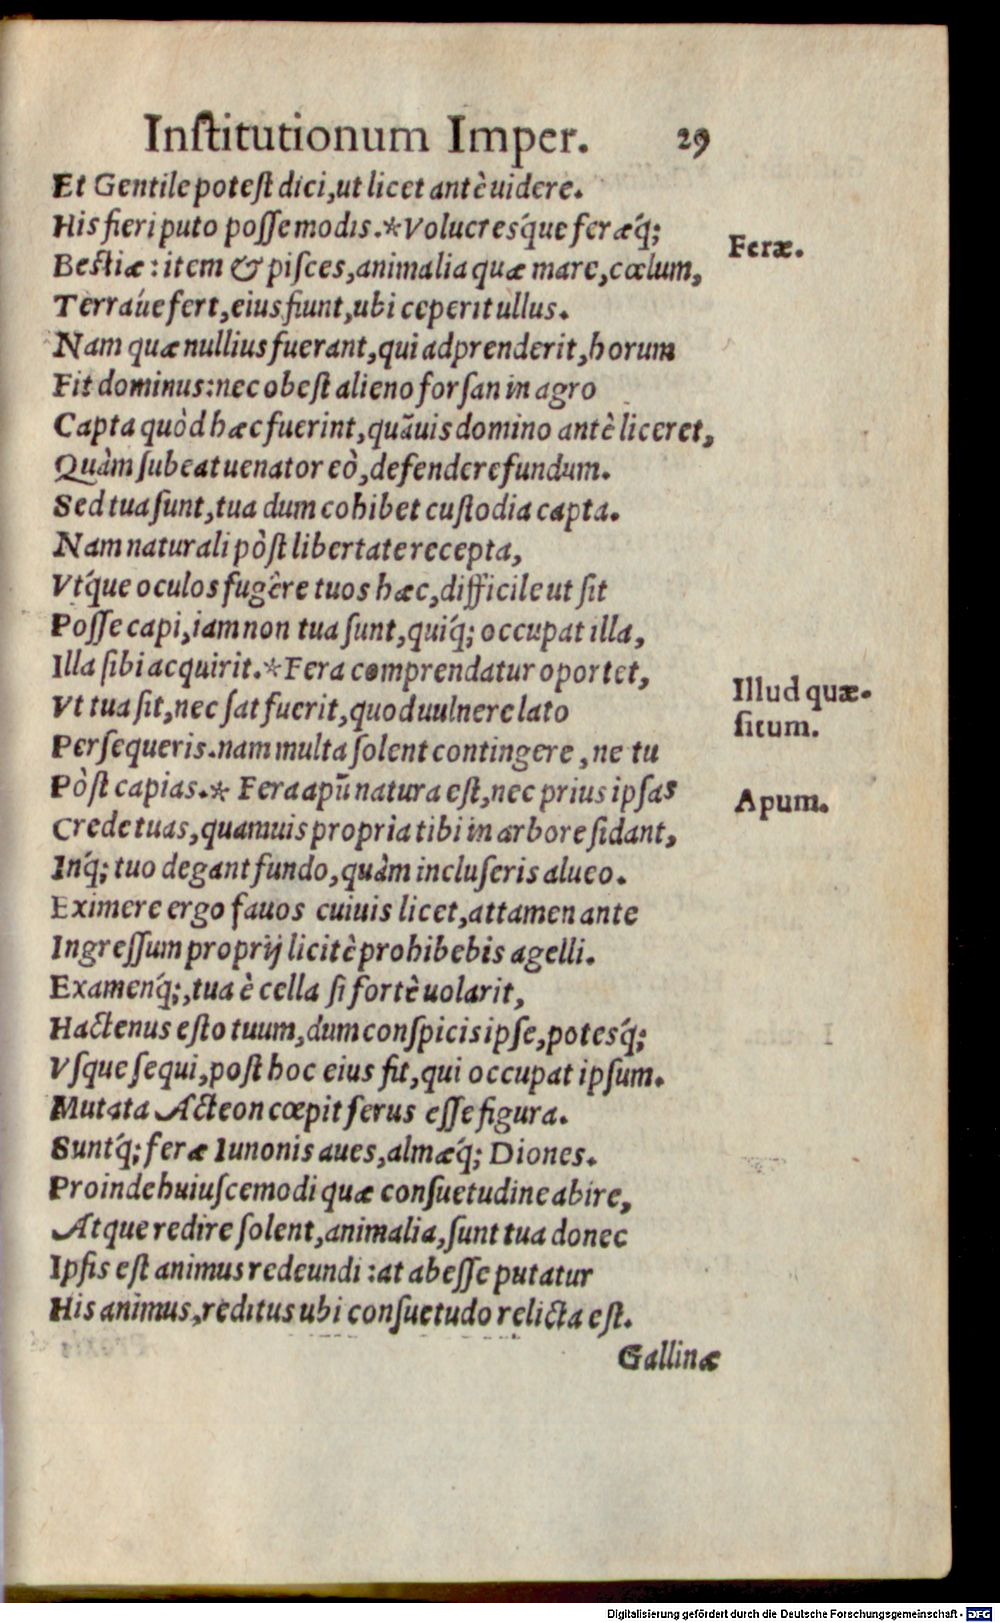 Inſtitutionum Imper. 29
Et Gentile poteſt dici, ut licet antè uidere.
His fieri puto poſſe modis.*Volucresq́ue feræq́;
Feræ.
Beſtiæ: item & piſces, animalia quæ mare, cœlum,
Terraúe fert, eius fiunt, ubi ceperit ullus.
Nam quæ nullius fuerant, qui adprenderit, horum
Fit dominus: nec obeſt alieno forſan in agro
Capta quòd hæc fuerint, quãuis domino antè liceret,
Quàm ſubeat uenator eò, defendere fundum.
Sed tua ſunt, tua dum cohibet cuſtodia capta.
Nam naturali pòſt libertate recepta,
Vtq́ue oculos fugêre tuos hæc, difficile ut ſit
Poſſe capi, iam non tua ſunt, quiq́; occupat illa,
Illa ſibi acquirit.*Fera comprendatur oportet,
Illud quæ-
ſitum.
Vt tua ſit, nec ſat fuerit, quod uulnere lato
Perſequeris. nam multa ſolent contingere, ne tu
Pòſt capias.* Fera apũ natura eſt, nec prius ipſas
Apum.
Crede tuas, quamuis propria tibi in arbore ſidant,
Inq́; tuo degant fundo, quàm incluſeris alueo.
Eximere ergo fauos cuiuis licet, attamen ante
Ingreſſum proprij licitè prohibebis agelli.
Examenq́;, tua è cella ſi fortè uolarit,
Hactenus eſto tuum, dum conſpicis ipſe, potesq́;
Vſque ſequi, poſt hoc eius fit, qui occupat ipſum.
Mutata Acteon cœpit ferus eſſe figura.
Suntq́; feræ Iunonis aues, almæq́; Diones.
Proinde huiuſcemodi quæ conſuetudine abire,
Atque redire ſolent, animalia, ſunt tua donec
Ipſis eſt animus redeundi: at abeſſe putatur
His animus, reditus ubi conſuetudo relicta eſt.
Gallinæ
Digitalisierung gefördert durch die Deutsche Forschungsgemeinschaft - DFG